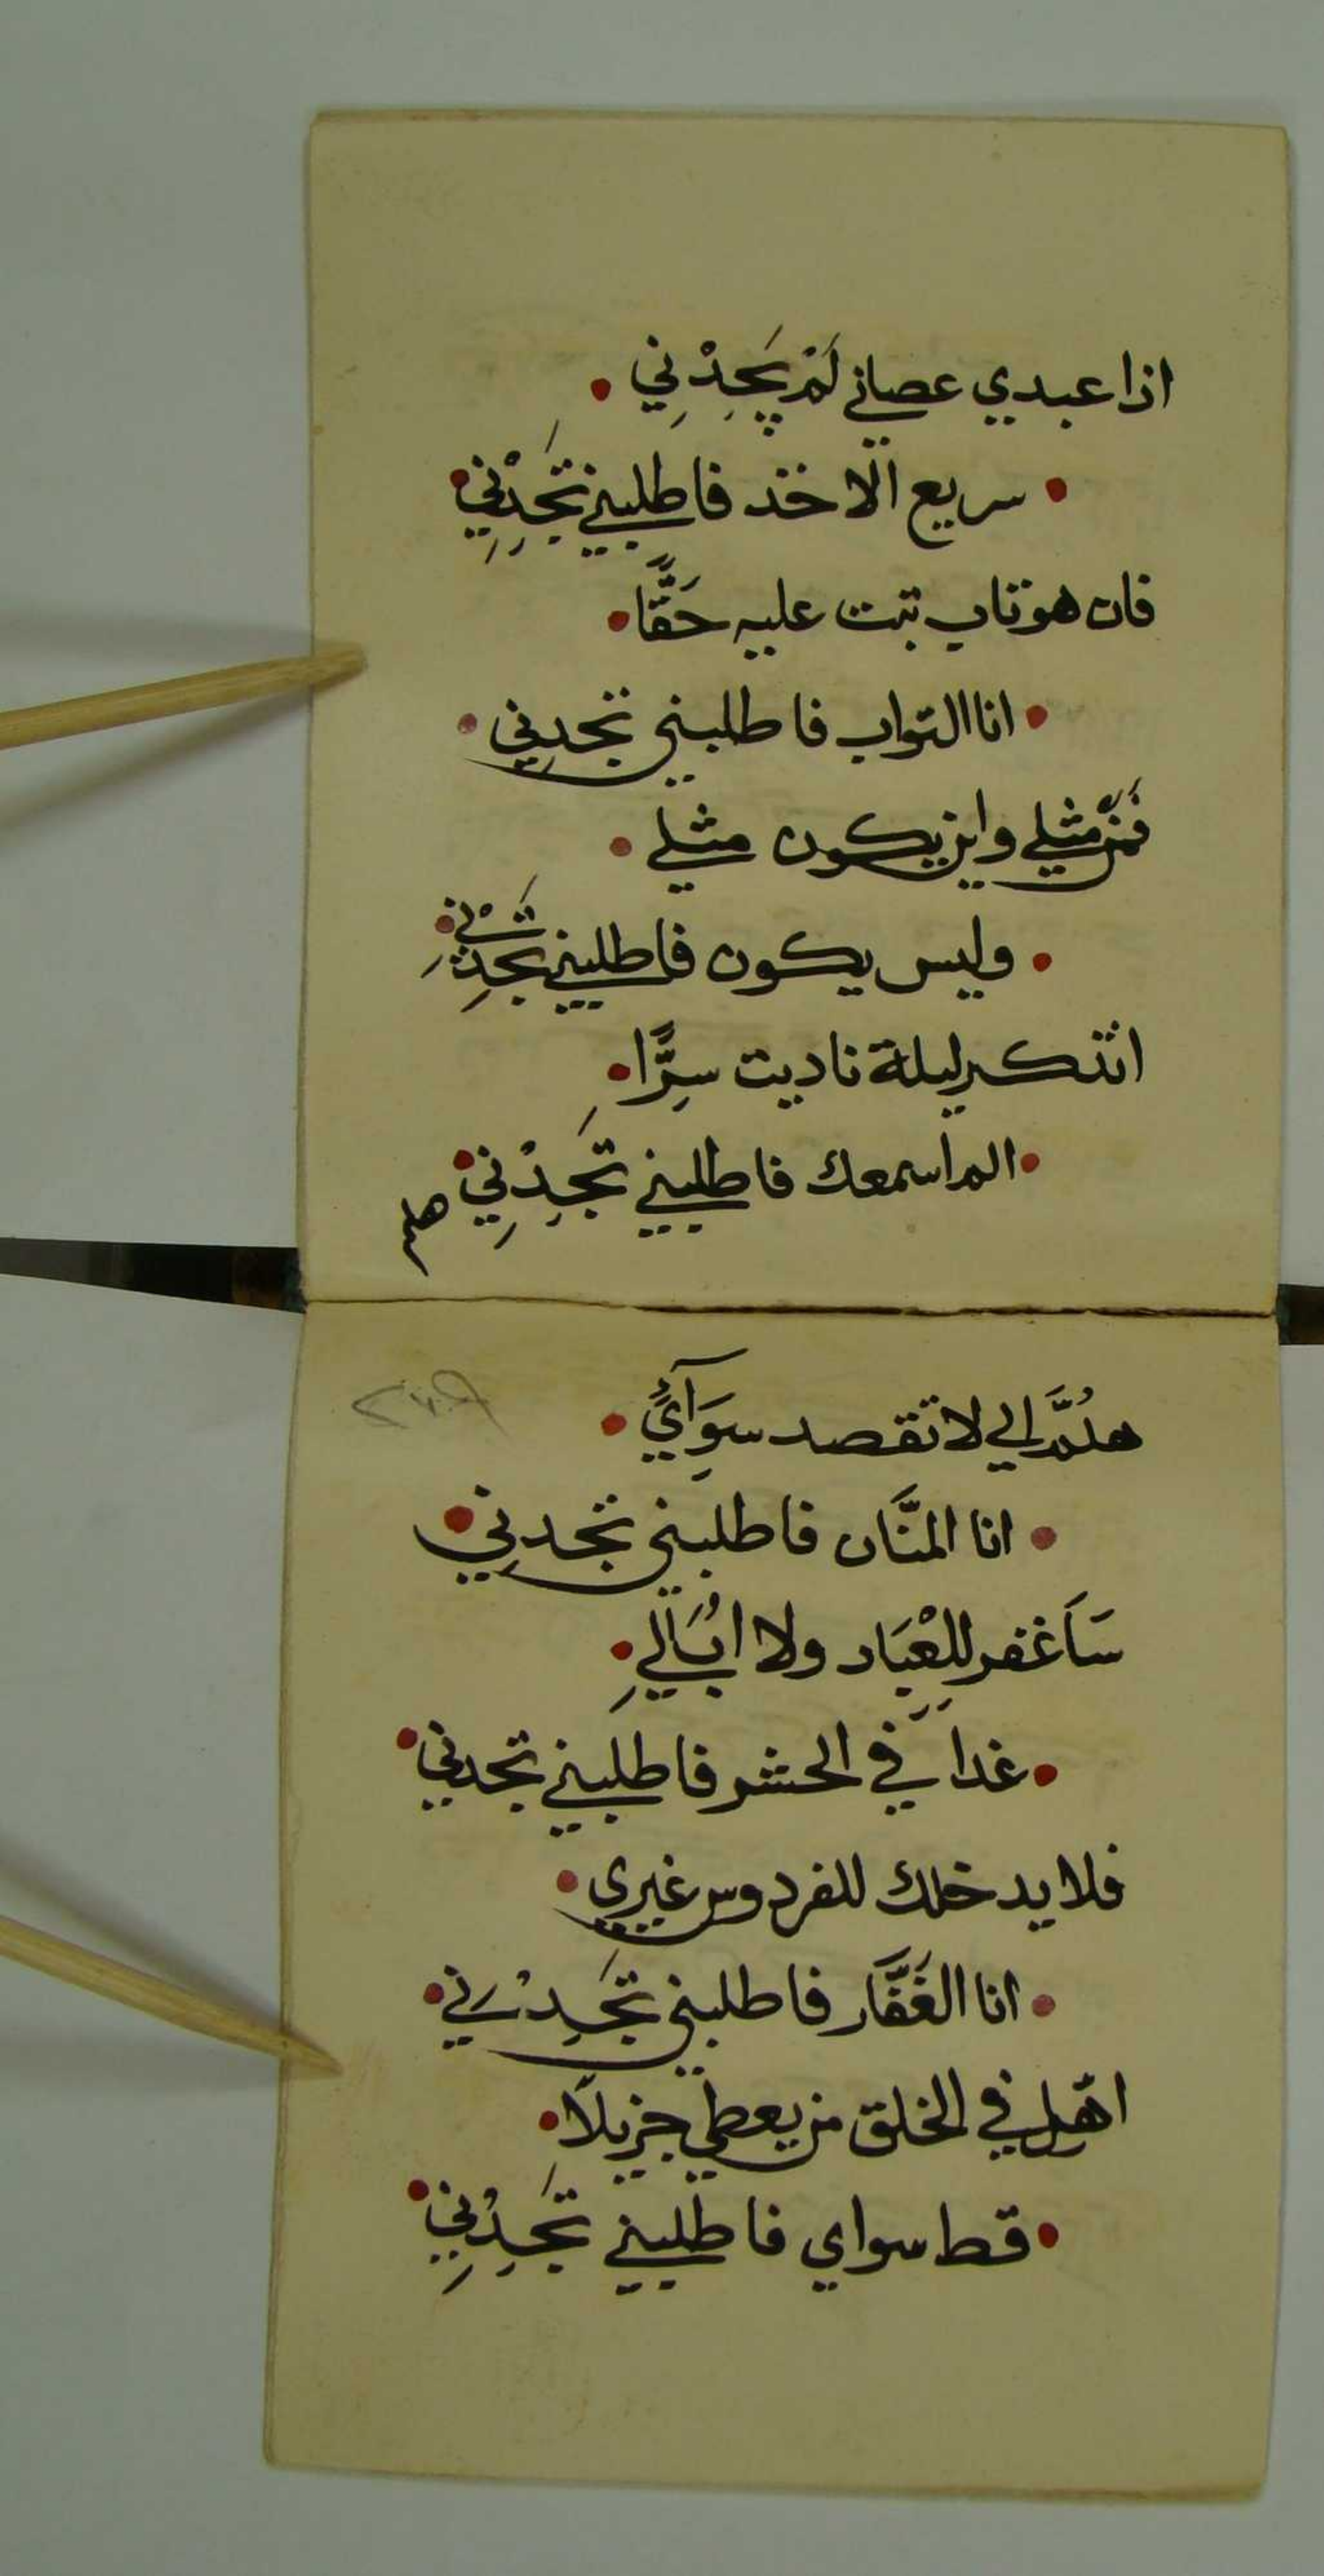 اذا عبدي عصاني لَمْ يَجِدْنِي
سريع الاخذ فاطلبني تَجِدْنِي
فان هو تاب تبت عليه حَقًّا
انا التواب فاطلبني تجدنِي
فَمَنْ مثلي واين يكون مثلي
وليس يكون فاطلبني تَجِدْنِي
اتذكر ليلة ناديت سِرًّا
الم اسمعك فاطلبني تَجِدْنِي
هلم
هلُمَّ الي لا تقصد سِوَآئِي
انا المنَّان فاطلبني تجدنِي
سَاَغفر للعِبَاد ولا اُبَالِي
غدا في الحشر فاطلبني تجدني
فلا يدخلك للفردوس غيري
انا الغَفَّار فاطلبني تَجِدْني
اهل في الخلق من يعطي جزيلا
قط سواي فاطلبني تَجِدْنِي